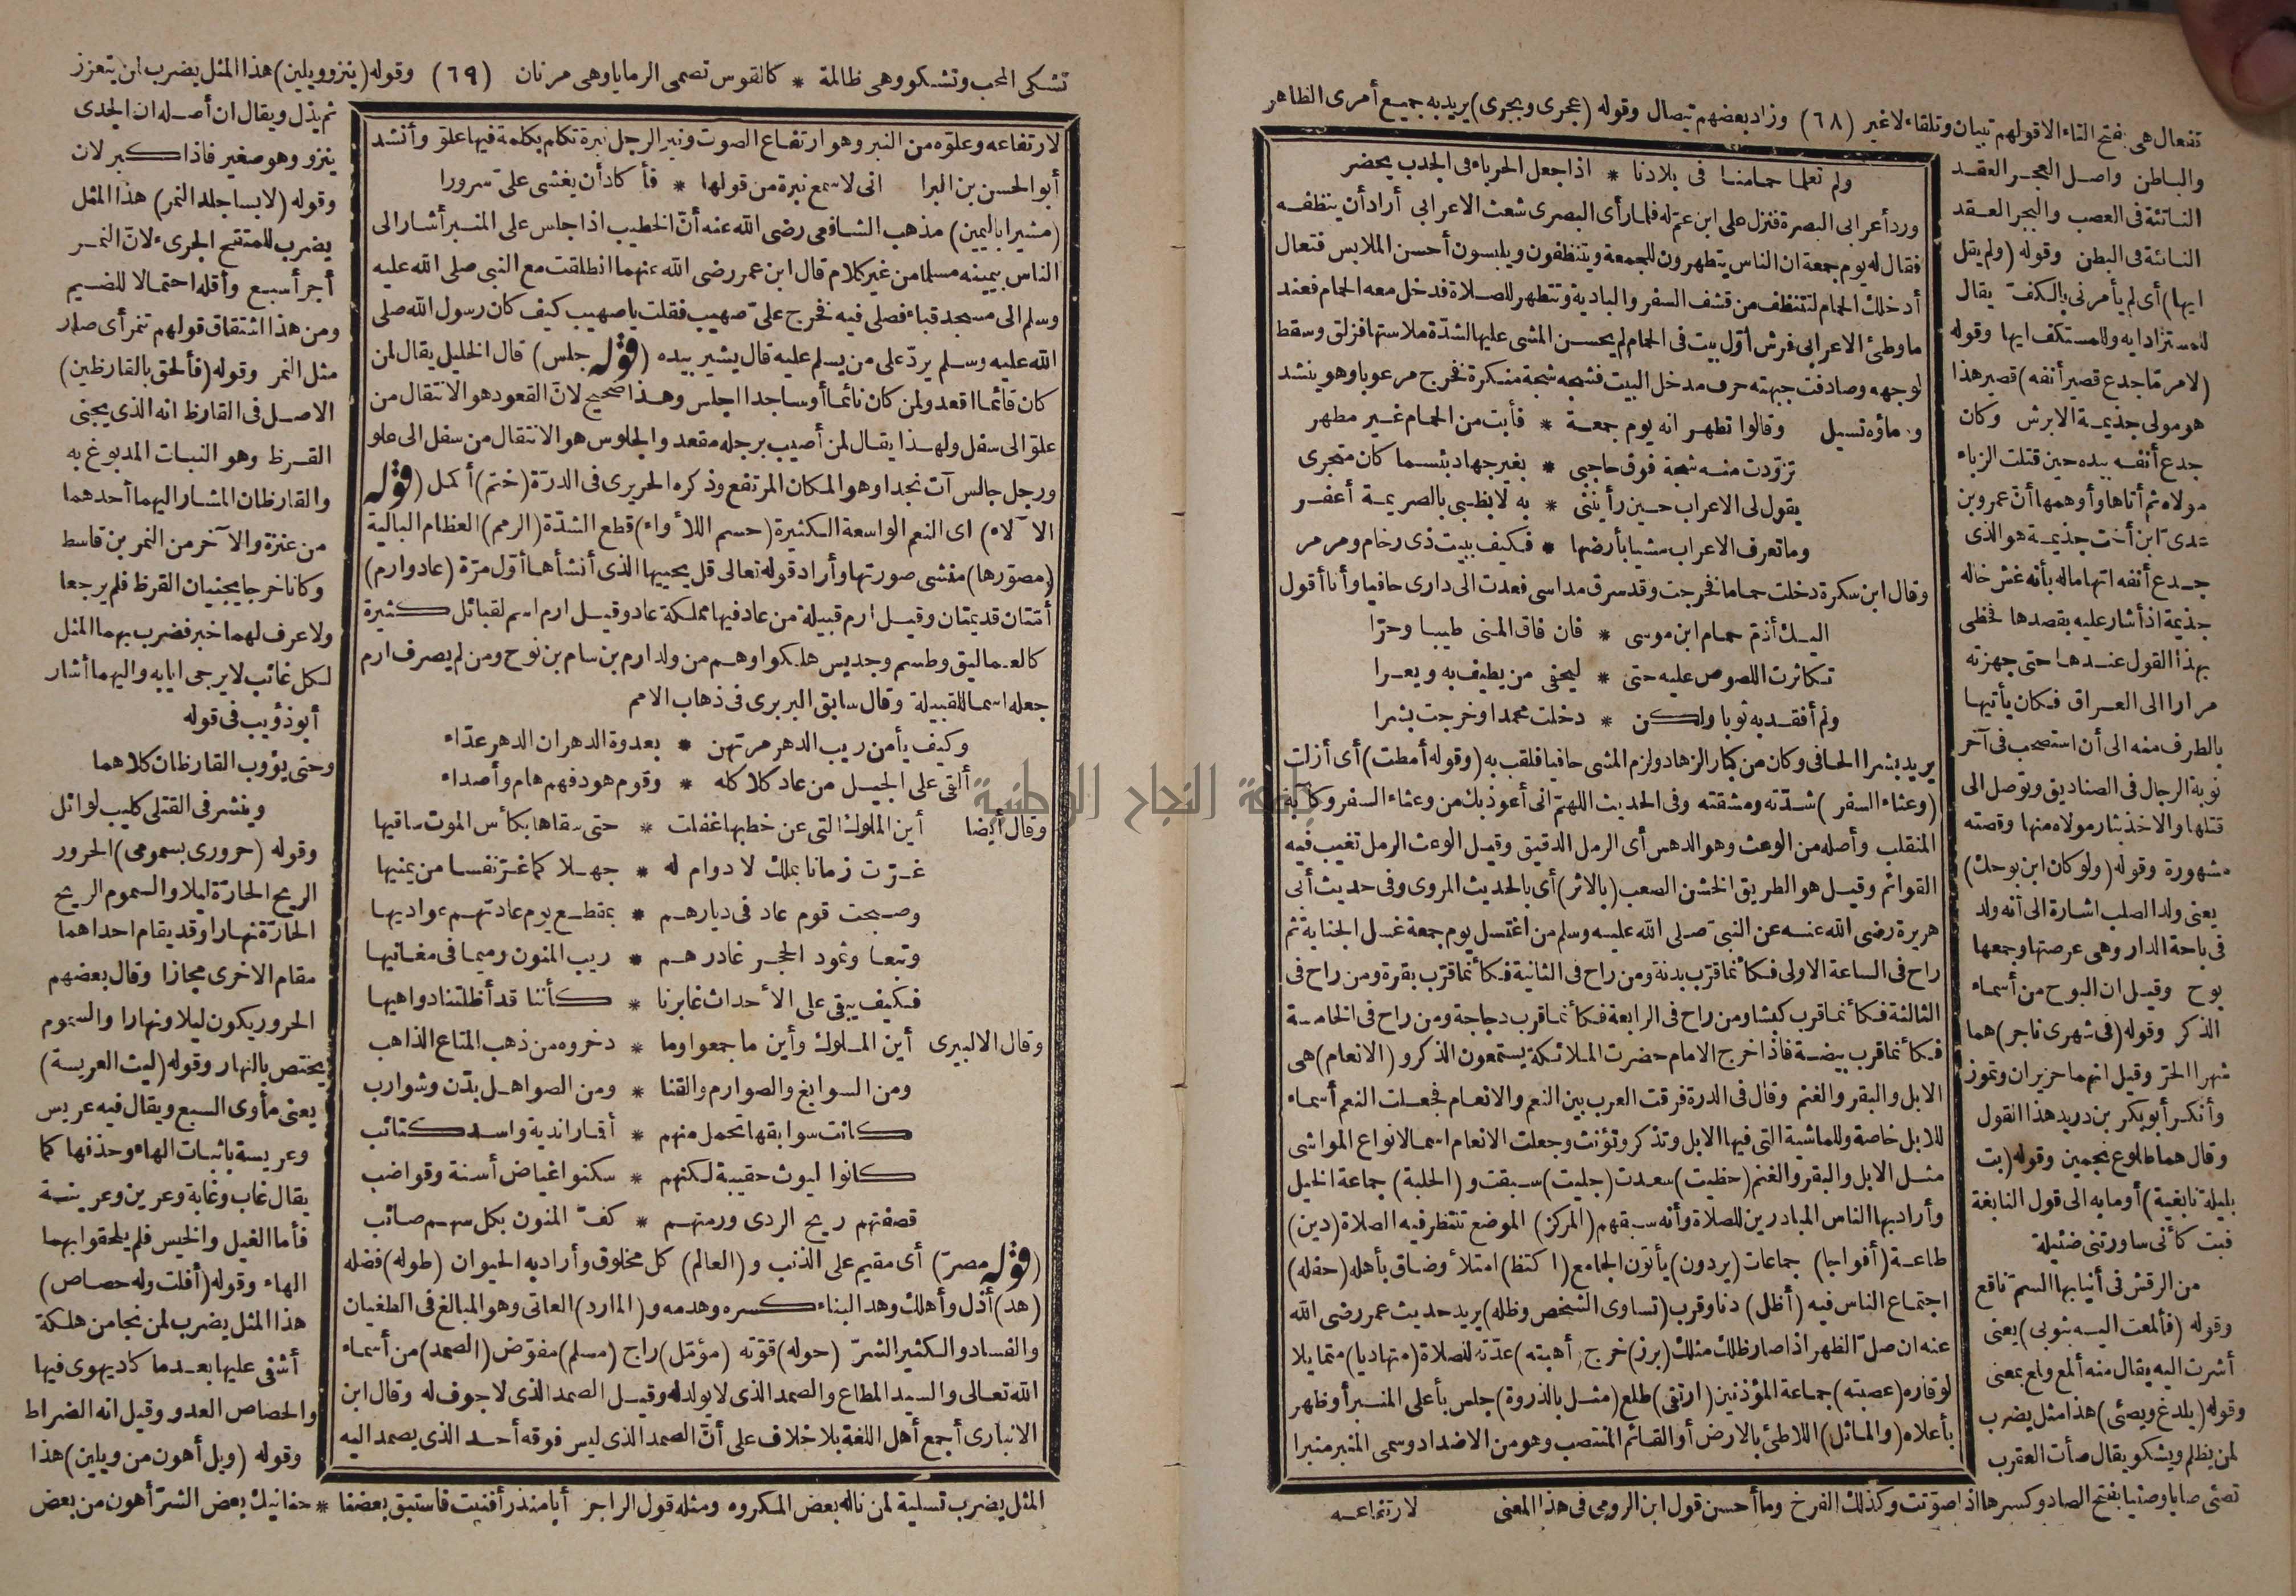 تفعال هى بفتح التاء الا قولهم تبيان وتلقاء لا غير (٦٨) وزاد بعضهم تيصال وقوله (عجرى وبجرى) يريد به جميع أمرى الظاهر
والباطن وأصل العجر العقد
الناتئة فى العصب والبجر العقد
الناتئة فى البطن وقوله (ولم يقل
ايها) أى لم يأمرنى بالكف يقال
للمستزاد ايه وللمستكف ايها وقوله
(لامر ما جدع قصير أنفه) قصير هذا
هو مولى جذيمة الابرش وكان
جدع أنفه بيده حين قتلت الزباء
مولاه ثم أتاها وأوهمها أن عمرو بن
عدى ابن أخت جذيمة هو الذى
جدع أنفه اتهاما له بأنه غش خاله
جذيمة اذ أشار عليه بقصدها فحظى
بهذا القول عندها حتى جهزته
مرارا الى العراق فكان يأتيها
بالطرف منه الى أن استصحب فى آخر
نوبة الرجال فى الصناديق وتوصل الى
قتلها والاخذ بثار مولاه منها وقصته
مشهورة وقوله (ولو كان ابن بوحك)
يعنى ولد الصلب اشارة الى أنه ولد
فى باحة الدار وهى عرصتها وجمعها
بوح وقيل ان البوح من أسماء
الذكر وقوله (فى شهرى ناجر) هما
شهرا الحر وقيل انهما حزيران وتموز
وأنكر أبو بكر بن دريد هذا القول
وقال هما طلوع نجمين وقوله (بت
بليلة نابغية) أومأ به الى قول النابغة
فبت كأنى ساورتنى ضئيلة
من الرقش فى أنيابها السم ناقع
وقوله (فألمعت اليه بثوبى) يعنى
أشرت اليه يقال منه ألمع ولمع بمعنى
وقوله (يلدغ ويصئى) هذا مثل يضرب
لمن يظلم ويشكو يقال صأت العقرب
تصئى صايا وصئيا بفتح الصاد وكسرها اذا صوتت وكذلك الفرخ وما أحسن قول ابن الرومى فى هذا المعنى
ولم تعلما حمامنا فى بلادنا * اذا جعل الحرباء فى الجدب يحضر
ورد أعرابى البصرة فنزل على ابن عم له فلما رأى البصرى شعث الاعرابى أراد أن ينظفه
فقال له يوم جمعة ان الناس يتطهرون للجمعة ويتنظفون ويلبسون أحسن الملابس فتعال
أدخلك الحمام لتتنظف من قشف السفر والبادية وتتطهر للصلاة فدخل معه الحمام فعند
ما وطئ الاعرابى فرش أول بيت فى الحمام لم يحسن المشى عليها لشدة ملاستها فزلق وسقط
لوجهه وصادفت جبهته حرف مدخل البيت فشجه شجة منكرة فخرج مرعوبا وهو ينشد
ودماؤه تسيل وقالوا تطهر انه يوم جمعة * فأبت من الحمام غير مطهر
تزودت منه شجة فوق حاجبى * بغير جهاد بئسما كان متجرى
يقول لى الاعراب حين رأيننى * به لا بظبى بالصريمة أعفر
وما تعرف الاعراب مشيا بأرضها * فكيف ببيت ذى رخام ومرمر
وقال ابن سكرة دخلت حماما فخرجت وقد سرق مداسى فعدت الى دارى حافيا وأنا أقول
اليك أذم حمام ابن موسى * فان فاق المنى طيبا وحرا
تكاثرت اللصوص عليه حتى * ليحفى من يطيف به ويعرا
ولم أفقد به ثوبا ولكن * دخلت محمدا وخرجت بشرا
يريد بشرا الحافى وكان من كبار الزهاد ولزم المشى حافيا فلقب به (وقوله أمطت) أى أزلت
(وعثاء السفر) شدته ومشقته وفى الحديث اللهم انى أعوذ بك من وعثاء السفر وكآبة
المنقلب وأصله من الوعث وهو الدهس أى الرمل الدقيق وقيل الوعث الرمل تغيب فيه
القوائم وقيل هو الطريق الخشن الصعب (بالاثر) أى بالحديث المروى وفى حديث أبى
هريرة رضى الله عنه عن النبى صلى الله عليه وسلم من اغتسل يوم جمعة غسل الجنابة ثم
راح فى الساعة الاولى فكأنما قرب بدنة ومن راح فى الثانية فكأنما قرب بقرة ومن راح فى
الثالثة فكأنما قرب كبشا ومن راح فى الرابعة فكأنما قرب دجاجة ومن راح فى الخامسة
فكأنما قرب بيضة فاذا خرج الامام حضرت الملائكة يستمعون الذكر و(الانعام) هى
الابل والبقر والغنم وقال فى الدرة فرقت العرب بين النعم والانعام فجعلت النعم أسماء
للابل خاصة وللماشية التى فيها الابل وتذكر وتؤنث وجعلت الانعام اسما لانواع المواشى
مثل الابل والبقر والغنم (حظيت) سعدت (جليت) سبقت و(الحلبة) جماعة الخيل
وأراد بها الناس المبادرين للصلاة وأنه سبقهم (المركز) الموضع تنتظر فيه الصلاة (دين)
طاعة (أفواجا) جماعات (يردون) يأتون الجامع (اكتظ) امتلأ وضاق بأهله (حفله)
اجتماع الناس فيه (أظل) دنا وقرب (تساوى الشخص وظله) يريد حديث عمر رضى الله
عنه ان صل الظهر اذا صار ظلك مثلك (برز) خرج (أهبته) عدته للصلاة (متهاديا) متمايلا
لوقاره (عصبته) جماعة المؤذنين (ارتقى) طلع (مثل بالذروة) جلس بأعلى المنبر أو ظهر
بأعلاه (والماثل) اللاطئ بالارض أو القائم المنتصب وهو من الاضداد وسمى المنبر منبرا
لارتفاعه
تشكى المحب وتشكو وهى ظالمة * كالقوس تصمى الرمايا وهى مرنان (٦٩) وقوله (ينزو ويلين) هذا المثل يضرب لمن يتعزز
ثم يذل ويقال ان أصله ان الجدى
ينزو وهو صغير فاذا كبر لان
وقوله (لابسا جلد النمر) هذا المثل
يضرب للمتقح الجرىء لان النمر
أجرأ سبع وأقله احتمالا للضيم
ومن هذا اشتقاق قولهم تنمر أى صار
مثل النمر وقوله (فألحق بالقارظين)
الاصل فى القارظ انه الذى يجنى
القرظ وهو النبات المدبوغ به
والقارظان المشار اليهما أحدهما
من عنزة والآخر من النمر بن قاسط
وكانا خرجا يجنيان القرظ فلم يرجعا
ولا عرف لهما خبر فضرب بهما المثل
لكل غائب لا يرجى ايابه واليهما أشار
أبو ذؤيب فى قوله
وحتى يؤوب القارظان كلاهما
وينشر فى القتلى كليب لوائل
وقوله (حرورى بسمومى) الحرور
الريح الحارة ليلا والسموم الريح
الحارة نهارا وقد يقام احداهما
مقام الاخرى مجازا وقال بعضهم
الحرور يكون ليلا ونهارا والسموم
يختص بالنهار وقوله (ليث العريسة)
يعنى مأوى السبع ويقال فيه عريس
وعريسة باثبات الهاء وحذفها كما
يقال غاب وغابة وعرين وعرينة
فأما الغيل والخيس فلم يلحقوا بهما
الهاء وقوله (أفلت وله حصاص)
هذا المثل يضرب لمن نجا من هلكة
أشفى عليها بعدما كاد يهوى فيها
والحصاص العدو وقيل انه الضراط
وقوله (ويل أهون من ويلين) هذا
المثل يضرب تسلية لمن ناله بعض المكروه ومثله قول الراجز أبا منذر أفنيت فاستبق بعضنا * حنانيك بعض الشر أهون من بعض
لارتفاعه وعلوه من النبر وهو ارتفاع الصوت ونبر الرجل نبرة تكلم بكلمة فيها علو وأنشد
أبو الحسن بن البرا انى لاسمع نبرة من قولها * فأكاد أن يغشى على سرورا
(مشيرا باليمين) مذهب الشافعى رضى الله عنه أن الخطيب اذا جلس على المنبر أشار الى
الناس بيمينه مسلما من غير كلام قال ابن عمر رضى الله عنهما انطلقت مع النبى صلى الله عليه
وسلم الى مسجد قباء فصلى فيه فخرج على صهيب فقلت يا صهيب كيف كان رسول الله صلى
الله عليه وسلم يرد على من يسلم عليه قال يشير بيده (قوله جلس) قال الخليل يقال لمن
كان قائما اقعد ولمن كان نائما أو ساجدا اجلس وهذا صحيح لان القعود هو الانتقال من
علو الى سفل ولهذا يقال لمن أصيب برجله مقعد والجلوس هو الانتقال من سفل الى علو
ورجل جالس آت نجدا وهو المكان المرتفع وذكره الحريرى فى الدرة (ختم) أكمل (قوله
الآلاء) اى النعم الواسعة الكثيرة (حسم اللأواء) قطع الشدة (الرمم) العظام البالية
(مصورها) منشى صورتها وأراد قوله تعالى قل يحييها الذى أنشأها أول مرة (عاد وارم)
أمتان قديمتان وقيل ارم قبيلة من عاد فيها مملكة عاد وقيل ارم اسم لقبائل كثيرة
كالعماليق وطسم وجديس هلكوا وهم من ولد ارم بن سام بن نوح ومن لم يصرف ارم
جعله اسما للقبيلة وقال سابق البربرى فى ذهاب الامم
وكيف يأمن ريب الدهر مرتهن * بعدوة الدهر ان الدهر عداء
ألقى على الجيل من عاد كلا كله * وقوم هود فهم هام وأصداء
وقال أيضا أين الملوك التى عن خطبها غفلت * حتى سقاها بكأس الموت ساقيها
غرت زمانا بملك لا دوام له * جهلا كما غر نفسا من يمنيها
وصبحت قوم عاد فى ديارهم * بمقطع يوم عادتهم عواديها
وتبعا وثمود الحجر غادرهم * ريب المنون رميما فى مغانيها
فكيف يبقى على الأحداث غابرنا * كأننا قد أظلتنا دواهيها
وقال الالبيرى أين الملوك وأين ما جمعوا وما * دخروه من ذهب المتاع الذاهب
ومن السوابغ والصوارم والقنا * ومن الصواهل بدن وشوارب
كانت سوابقها تحمل منهم * أقمار اندية واسد كتائب
كانوا ليوث حقيبة لكنهم * سكنوا غياض أسنة وقواضب
قصفتهم ريح الردى ورمتهم * كف المنون بكل سهم صائب
(قوله مصر) أى مقيم على الذنب و(العالم) كل مخلوق وأراد به الحيوان (طوله) فضله
(هد) أذل وأهلك وهد البناء كسره وهدمه و(المارد) العاتى وهو المبالغ فى الطغيان
والفساد والكثير الشر (حوله) قوته (مؤمل) راج (مسلم) مفوض (الصمد) من أسماء
الله تعالى والسيد المطاع والصمد الذى لا يولد له وقيل الصمد الذى لا جوف له وقال ابن
الانبارى أجمع أهل اللغة بلا خلاف على أن الصمد الذى ليس فوقه أحد الذى يصمد اليه
جامعة النجاح الوطنية